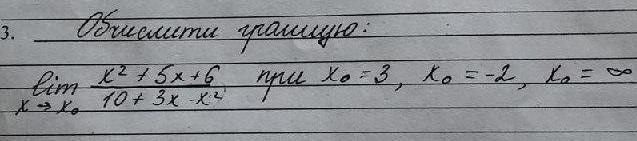 3. Обчислити границю:
lim x→x₀ (x² + 5x + 6)/(10 + 3x - x²) при x₀ = 3, x₀ = -2, x₀ = ∞